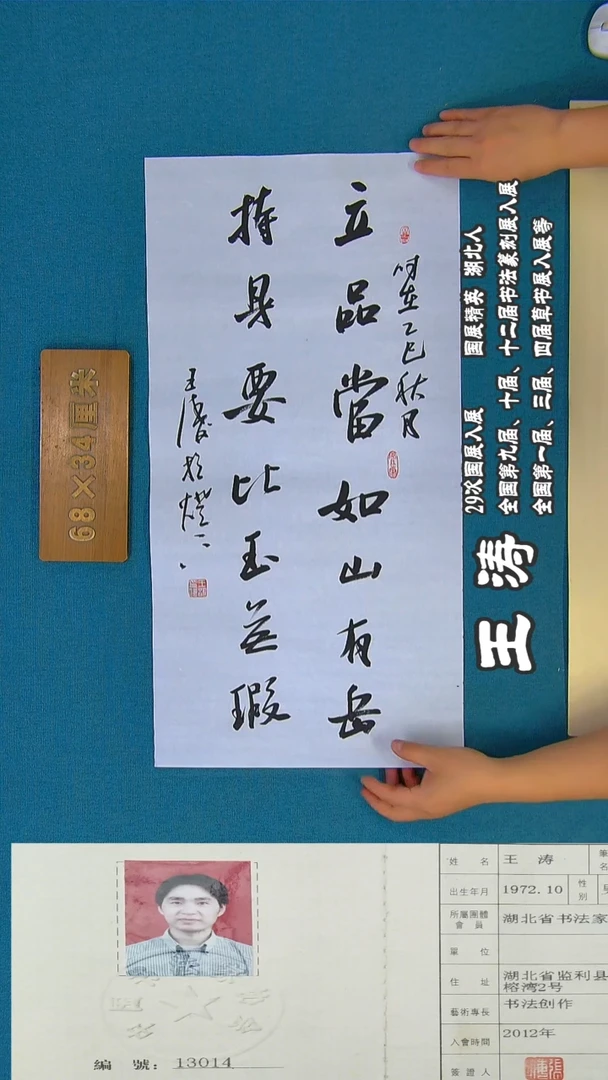 立品當如山有岳
持身要比玉無瑕
时在乙巳秋月
王涛於
68×34厘米
王涛
29次国展入展 国展精英 湖北人
全国第九届、十届、十二届书法篆刻展入展
全国第一届、三届、四届草书展入展等
姓名 王涛 筆名
出生年月 1972.10 性别
所屬團體會員 湖北省书法家
單位
住址 湖北省监利县
榕湾2号
藝術專長 书法创作
入會時間 2012年
簽證人
編號：13014